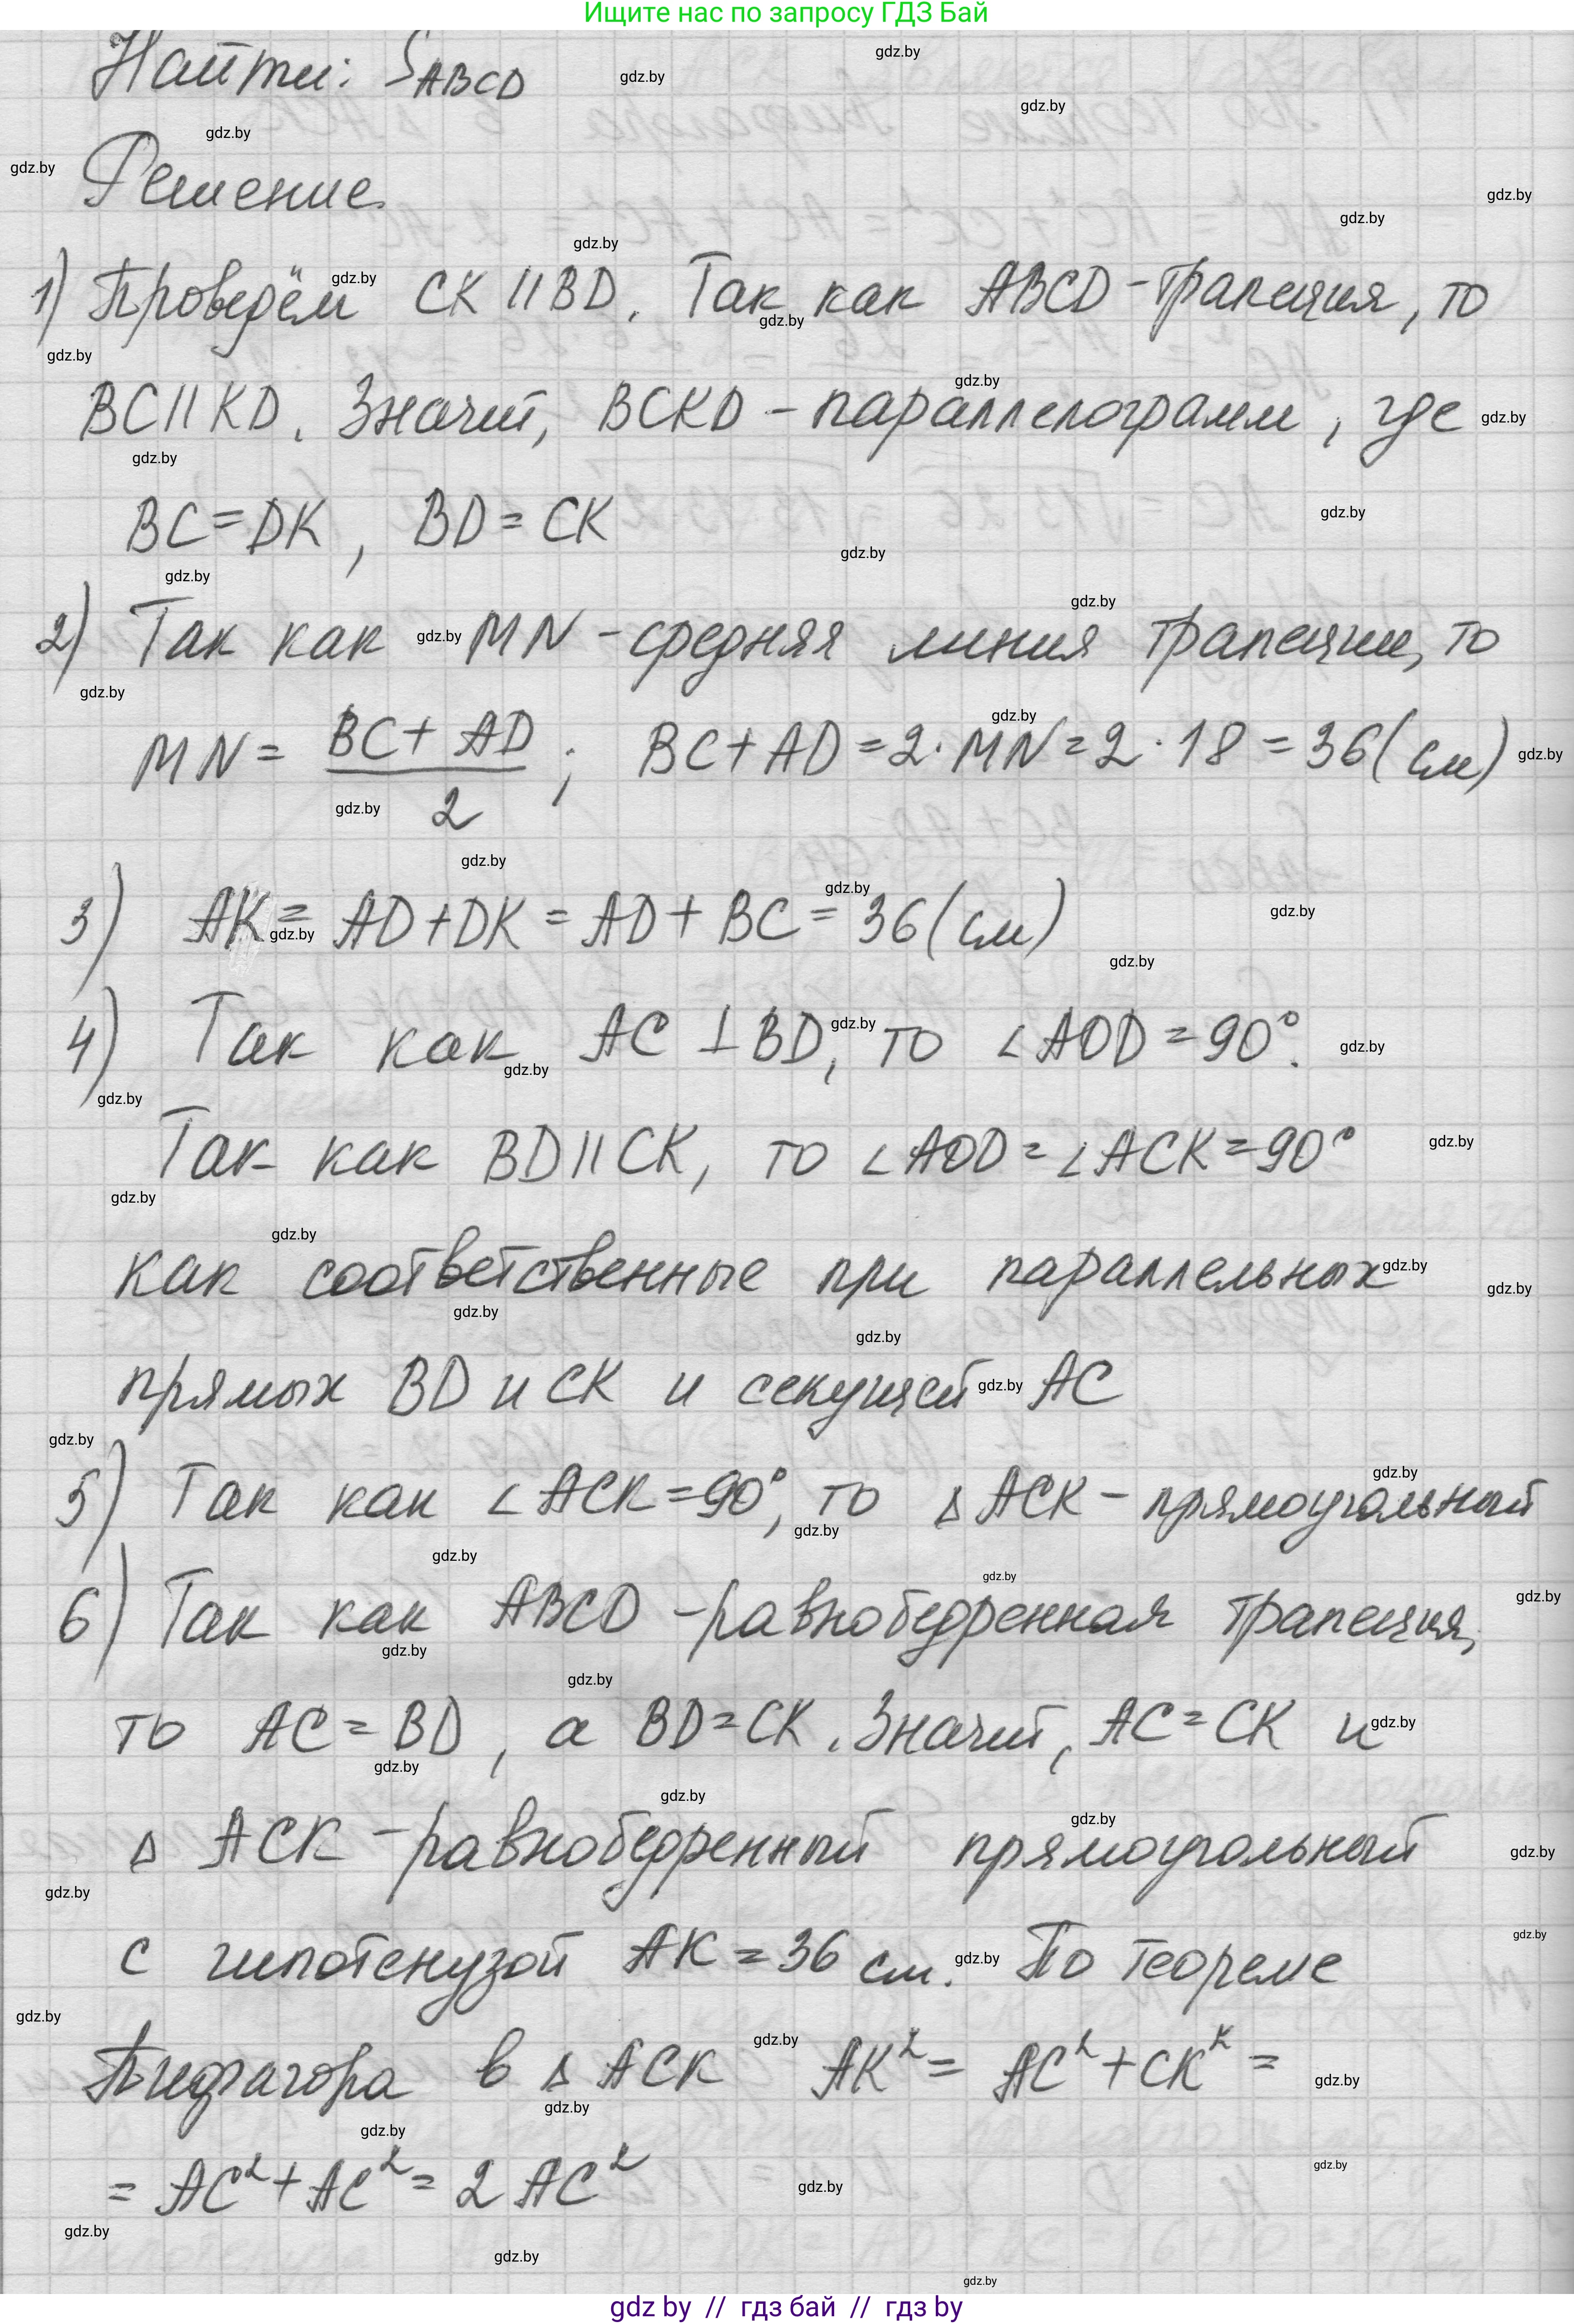 Ищите нас по запросу ГДЗ Бай
Найти: S_ABCD
Решение
1) Проведём CK || BD. Так как ABCD - трапеция, то
BC || KD. Значит, BCKD - параллелограмм, где
BC = DK, BD = CK
2) Так как MN - средняя линия трапеции, то
MN = (BC + AD)/2; BC + AD = 2 · MN = 2 · 18 = 36 (см)
3) AK = AD + DK = AD + BC = 36 (см)
4) Так как AC ⊥ BD, то ∠AOD = 90°.
Так как BD || CK, то ∠AOD = ∠ACK = 90°
как соответственные при параллельных
прямых BD и CK и секущей AC
5) Так как ∠ACK = 90°, то △ACK - прямоугольный
6) Так как ABCD - равнобедренная трапеция,
то AC = BD, а BD = CK. Значит, AC = CK и
△ ACK - равнобедренный прямоугольный
с гипотенузой AK = 36 см. По теореме
Пифагора в △ACK AK² = AC² + CK² =
= AC² + AC² = 2 AC²
gdz by // гдз бай // гдз by